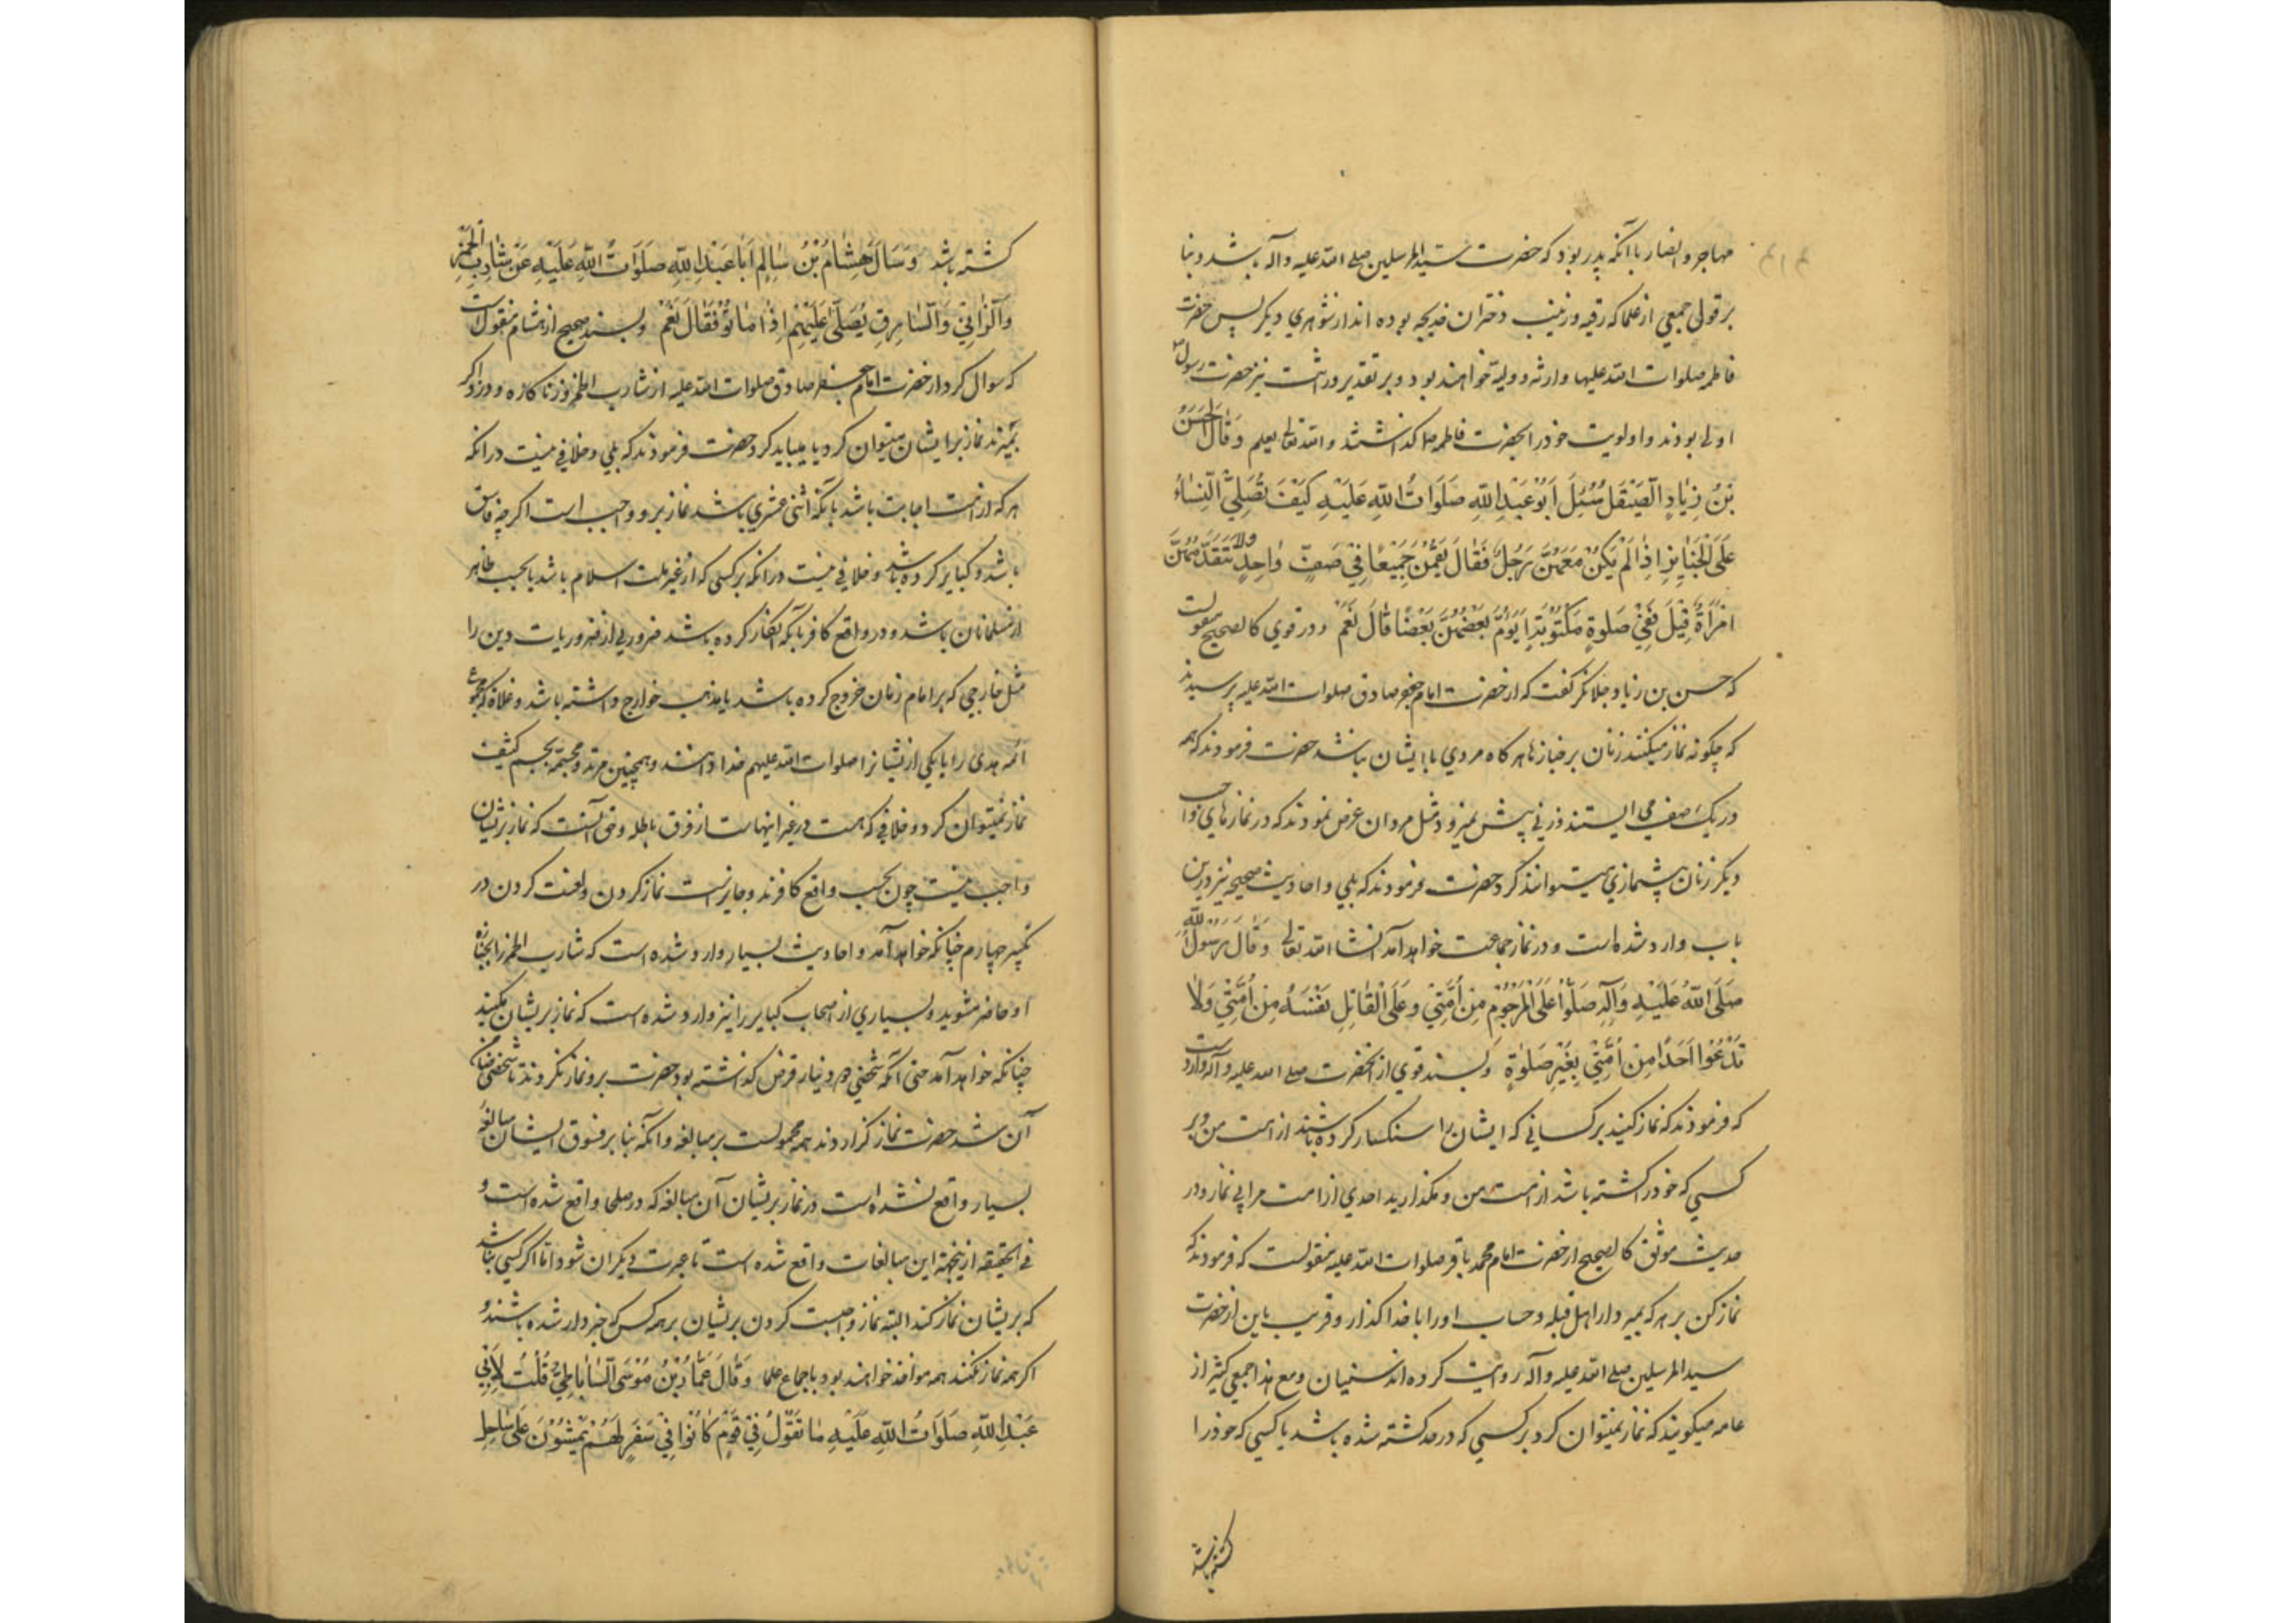 مهاجر و انصار با آنکه پدر بود که حضرت سید المرسلین صلی الله علیه وآله باشد و بنا
بر قول جمعی از علما که رقیه و زینب دختران خدیجه بوده اند از شوهری دیگر پس حضرت
فاطمه صلوات الله علیها وارثه و ولیه خواهند بود و بر تقدیر وراثت نیز حضرت رسول
اولی بودند و اولویت خود را بحضرت فاطمه صلا کذاشتند والله تعالی یعلم وَقَالَ الْحَسَنُ
بْنُ زِيَادٍ الصَّيْقَلُ سُئِلَ أَبُو عَبْدِ اللّٰهِ صَلَوَاتُ اللّٰهِ عَلَيْهِ كَيْفَ تُصَلِّي النِّسَاءُ
عَلَى الْجَنَايِزِ اِذَا لَمْ يَكُنْ مَعَهُنَّ رَجُلٌ فَقَالَ يَقُمْنَ جَمِيعًا فِي صَفٍّ وَاحِدٍ وَلَا تَتَقَدَّمُهُنَّ
امْرَأَةٌ قِيلَ فَفِي صَلٰوةٍ مَكْتُوبَةٍ اَيَؤُمُّ بَعْضُهُنَّ بَعْضًا قَالَ نَعَمْ و در قوی کالصحیح منقولست
که حسن بن زیاد جلانکر کفت که از حضرت امام جعفر صادق صلوات الله علیه پرسیدند
که چکونه نماز میکنند زنان بر جنازها هر کاه مردی با ایشان نباشد حضرت فرمودند که همه
در یک صف می ایستند و زنی پیش نمیرود مثل مردان عرض نمودند که در نمازهای واجب
دیکر زنان پیشنمازی میتوانند کرد حضرت فرمودند که بلی و احادیث صحیحه نیز درین
باب وارد شده است و در نماز جماعت خواهد آمد انشا الله تعالی وَقَالَ رَسُولُ اللّٰهِ
صَلَّى اللّٰهُ عَلَيْهِ وَآلِهِ صَلُّوا عَلَى الْمَرْجُومِ مِنْ أُمَّتِي وَعَلَى الْقَاتِلِ نَفْسَهُ مِنْ أُمَّتِي وَلَا
تَدَعُوا اَحَدًا مِنْ اُمَّتِي بِغَيْرِ صَلٰوةٍ و بسند قوی از آنحضرت صلی الله علیه وآله وارد است
که فرمودند که نماز کنید بر کسانی که ایشان را سنکسار کرده باشند از امت من و بر
کسی که خود را کشته باشد از امت من و مکذارید احدی از امت مرا بی نماز و در
حدیث موثق کالصحیح از حضرت امام محمد باقر صلوات الله علیه منقولست که فرمودند که
نماز کن بر هر که بمیرد از اهل قبله و حساب او را با خدا کذار و قریب باین از حضرت
سید المرسلین صلی الله علیه وآله روایت کرده اند سنیان و مع هذا جمعی کثیر از
عامه میکویند که نماز نمیتوان کرد بر کسی که در حد کشته شده باشد یا کسی که خود را
کشته باشد
کشته باشد وَسَأَلَ هِشَامُ بْنُ سَالِمٍ أَبَا عَبْدِ اللّٰهِ صَلَوَاتُ اللّٰهِ عَلَيْهِ عَنْ شَارِبِ الْخَمْرِ
وَالزَّانِي وَالسَّارِقِ يُصَلَّى عَلَيْهِمْ اِذَا مَاتُوا فَقَالَ نَعَمْ و بسند صحیح از هشام منقول است
که سوال کرد از حضرت امام جعفر صادق صلوات الله علیه از شارب الخمر و زناکاره و دزد اکر
بمیرند نماز بر ایشان میتوان کرد یا میباید کرد حضرت فرمودند که بلی و خلافی نیست در انکه
هر که از امت اجابت باشد بآنکه اثنی عشری باشد نماز برو واجب است اکر چه فاسق
باشد و کبایر کرده باشد و خلافی نیست در انکه بر کسی که از غیر ملت اسلام باشد یا بحسب ظاهر
از مسلمانان باشد و در واقع کافر بآنکه انکار کرده باشد ضروریی از ضروریات دین را
مثل خارجی که بر امام زمان خروج کرده باشد یا مذهب خوارج داشته باشد و غلاة که مجموع
ائمه هدی را یا یکی از ایشانرا صلوات الله علیهم خدا دانند و همچنین مرتد و مجسمه بجسم کثیف
نماز نمیتوان کرد و خلافی که هست در غیر اینهاست از فرق باطله و حق آنست که نماز بر ایشان
واجب نیست چون بحسب واقع کافرند و جایز است نماز کردن و لعنت کردن در
تکبیر چهارم چنانکه خواهد آمد و احادیث بسیار وارد شده است که شارب الخمر را بجنازه
او حاضر مشوید و بسیاری از اصحاب کبایر را نیز وارد شده است که نماز بر ایشان مکنید
چنانکه خواهد آمد حتی آنکه شخصی دو دینار قرض کذاشته بود حضرت برو نماز نکردند تا شخصی ضامن
آن شد حضرت نماز کزاردند همه محمولست بر مبالغه و آنکه بنا بر فسوق ایشان مبالغه
بسیار واقع نشده است در نماز بر ایشان آن مبالغه که در صلحا واقع شده است و
فی الحقیقه ازینجهة این مبالغات واقع شده است تا عبرت دیکران شود اما اکر کسی نباشد
که بر ایشان نماز کند البته نماز واجبست کردن بر ایشان بر همه کس که خبردار شده باشند و
اکر همه نماز نکنند همه مواخذ خواهند بود باجماع علما وَقَالَ عَمَّارُ بْنُ مُوسَى السَّابَاطِيُّ قُلْتُ لِاَبِي
عَبْدِ اللّٰهِ صَلَوَاتُ اللّٰهِ عَلَيْهِ مَا تَقُولُ فِي قَوْمٍ كَانُوا فِي سَفَرٍ لَهُمْ يَمْشُونَ عَلَى سَاحِلِ